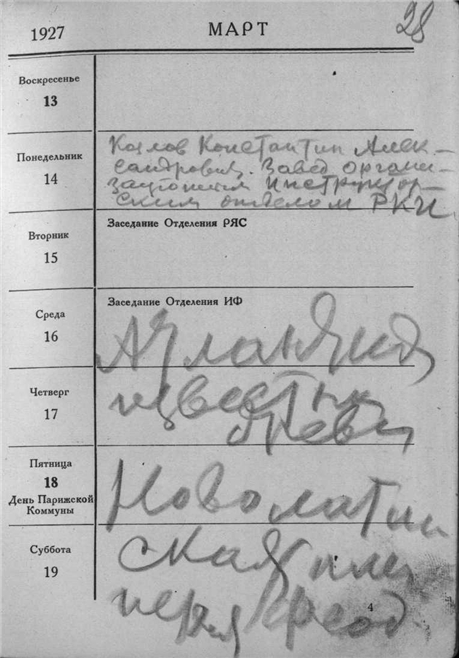 28
1927 МАРТ
Воскресенье
13
Понедельник
14
Козлов Константин Алек-
сандрович. Завед. органи-
зационным инструктор-
ским отделом РКИ
Вторник
15
Заседание Отделения РЯС
Среда
16
Заседание Отделения ИФ
Атлантида
Четверг
17
известны
древн
Пятница
18
День Парижской
Коммуны
Новолатин
Суббота
19
ская
4